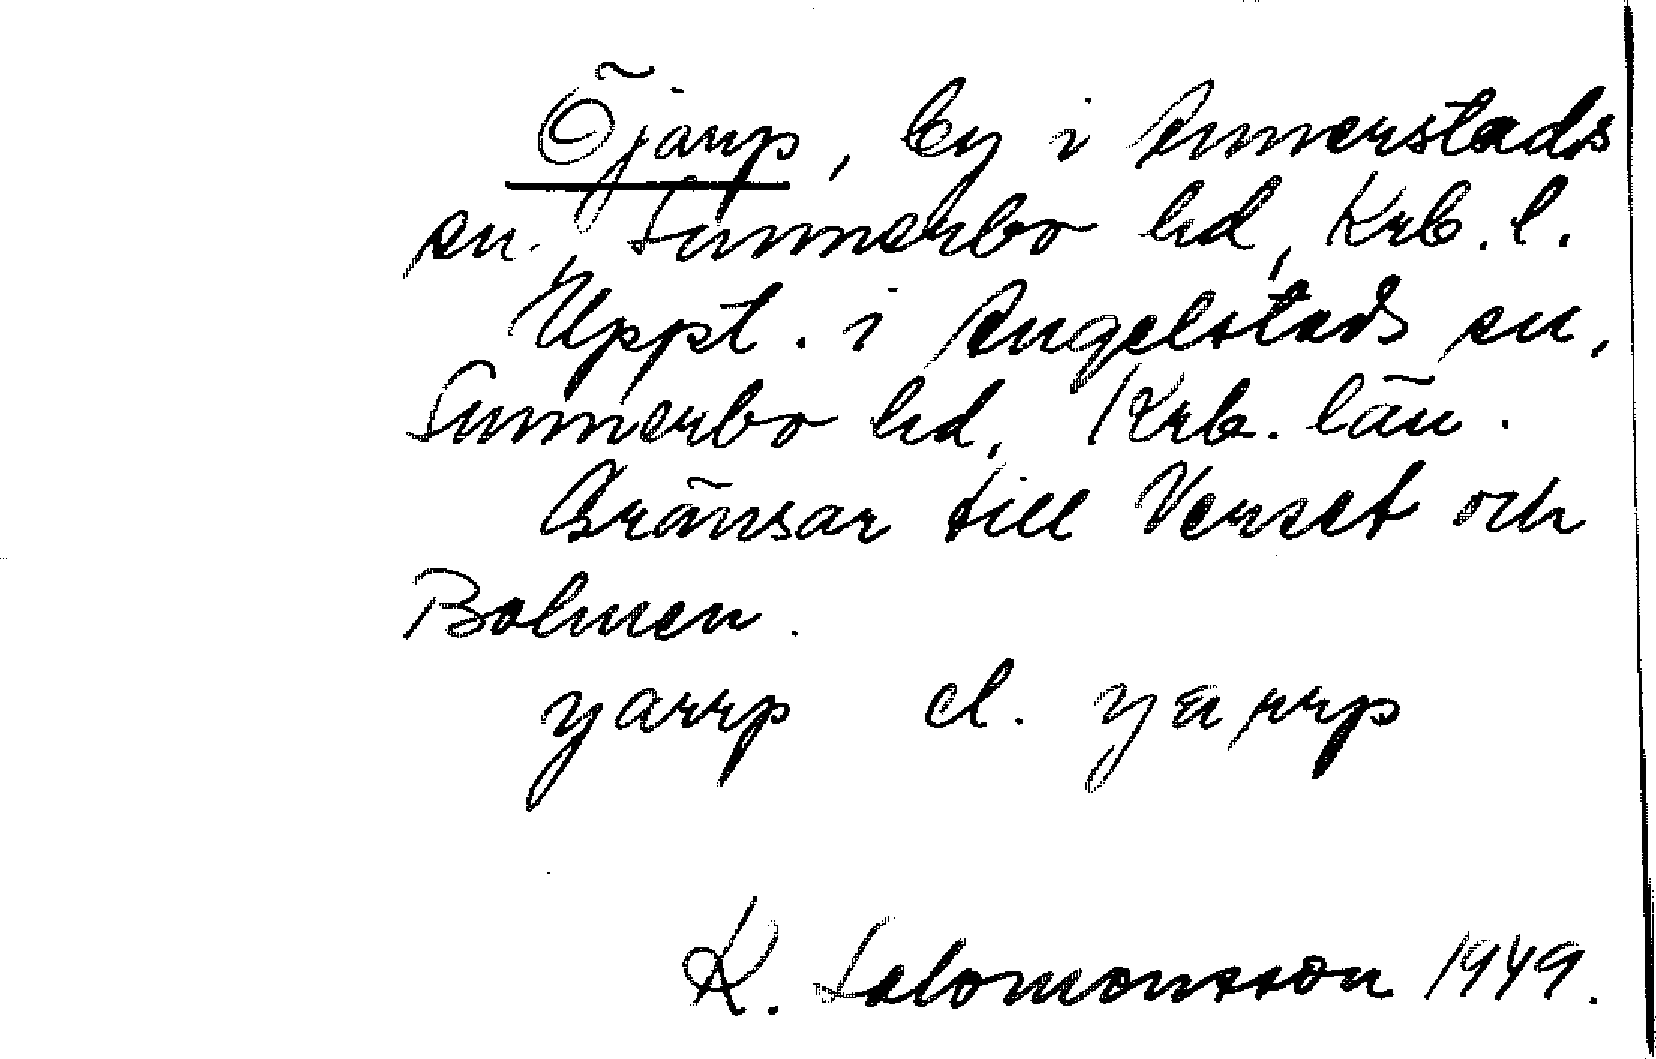 Öjarp, by i Annerstads
sn. Sunnerbo hd, Krb. l.
Uppt. i Angelstads sn,
Sunnerbo hd, Krb. län.
Gränsar till Verset och
Bolmen.
yarrp el. yarrp
K. Salomonsson 1949.